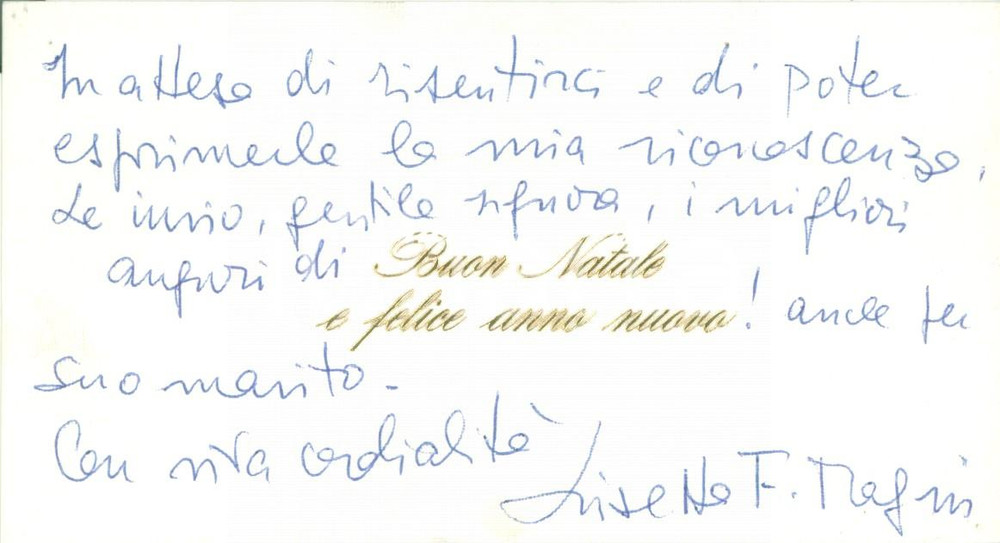 In attesa di risentirci e di poter
esprimerle la mia riconoscenza,
Le invio, gentile signora, i migliori
auguri di Buon Natale
e felice anno nuovo! anche per
suo marito -
Con viva cordialità
Lisetta F.